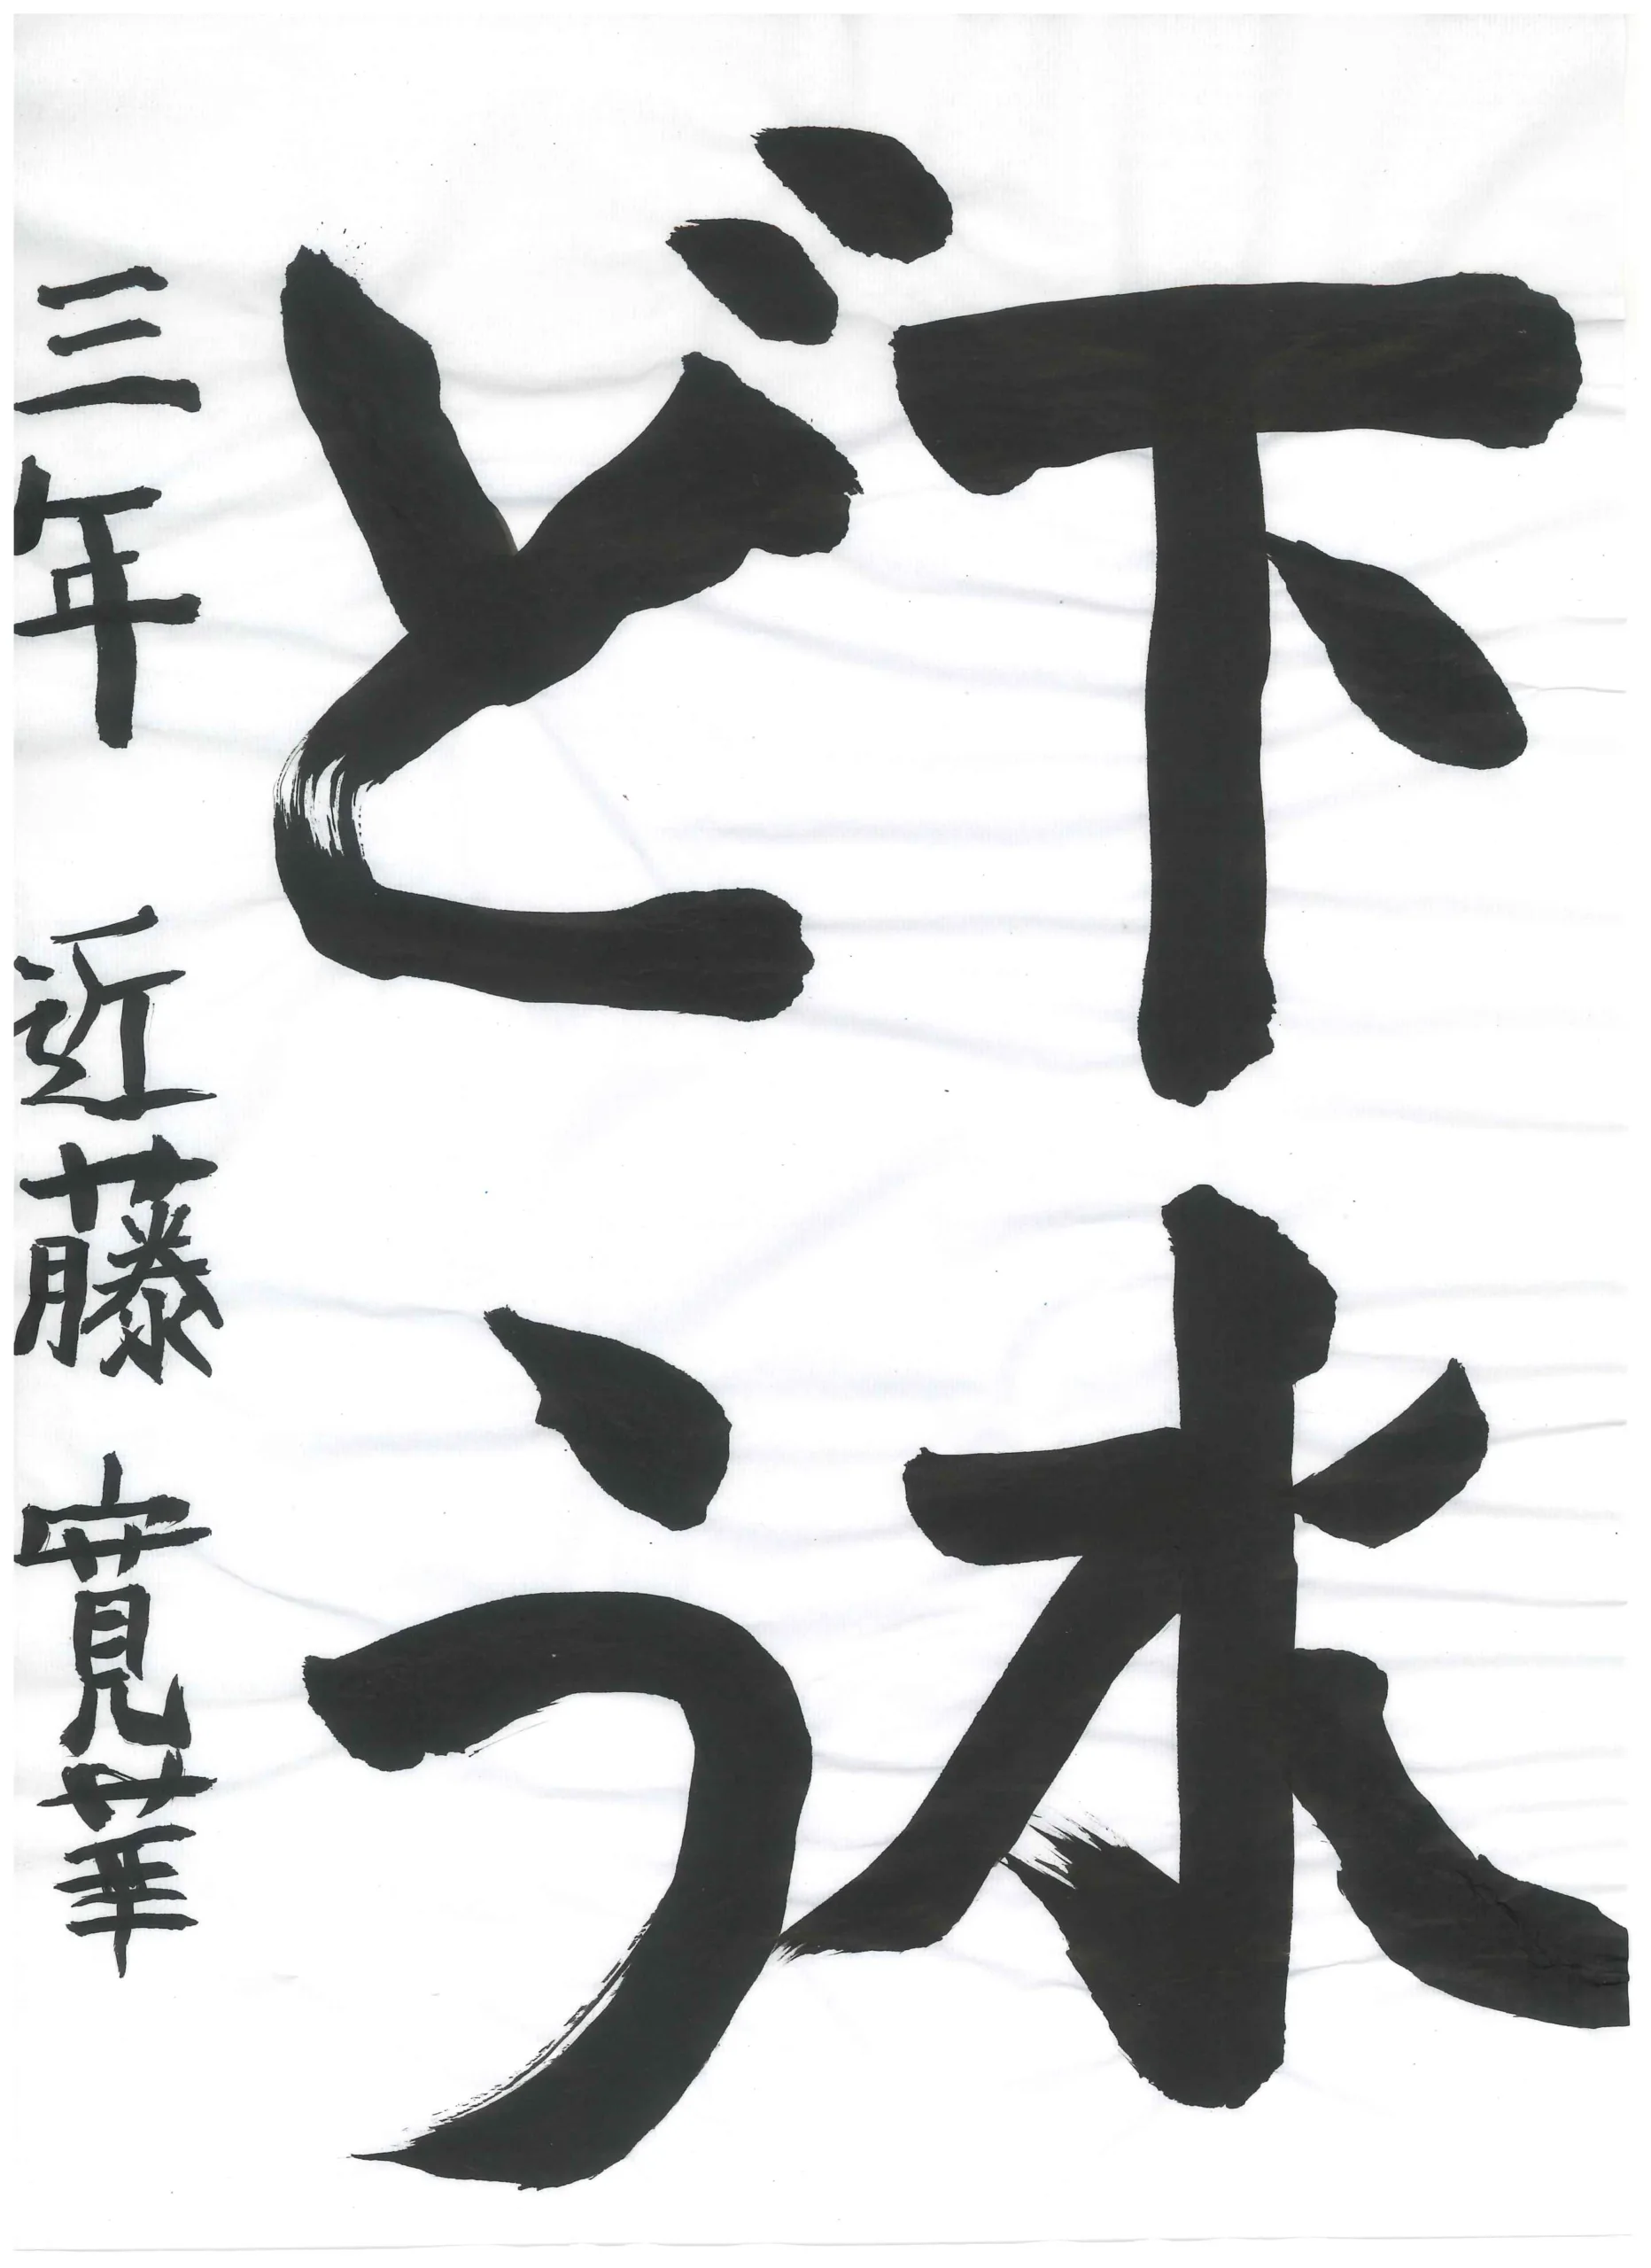 下水
どう
三年 近藤 寛華